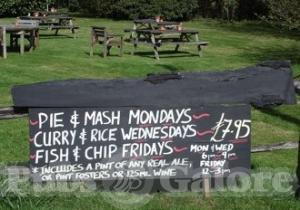 PIE & MASH MONDAYS
CURRY & RICE WEDNESDAYS
FISH & CHIP FRIDAYS
£7.95
* INCLUDES A PINT OF ANY REAL ALE,
OR PINT FOSTERS OR 125ML WINE
MON & WED
6PM - 9PM
FRIDAY
12 - 3 PM
Pubs Galore